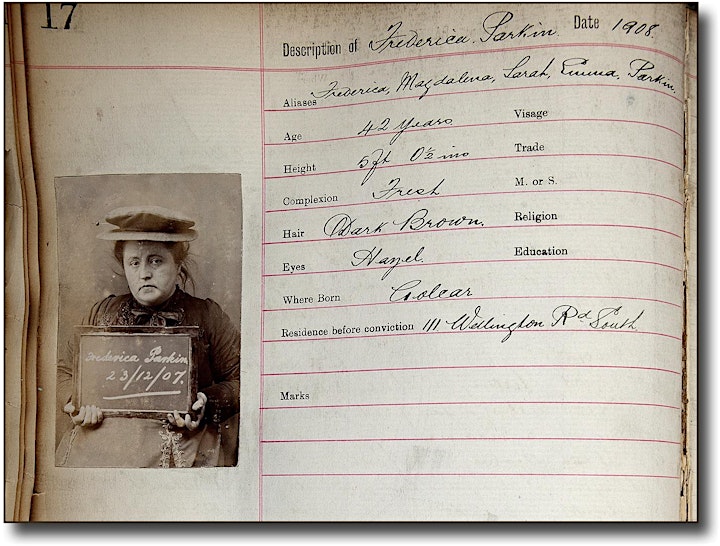 17
Description of Frederica Parkin Date 1908
Aliases Frederica, Magdalena, Sarah, Emma, Parkin
Age 42 years Visage
Height 5ft 0½ ins Trade
Complexion Fresh M. or S.
Hair Dark Brown. Religion
Eyes Hazel. Education
Where Born Golcar
Residence before conviction 111 Wellington Rd South
Marks
Frederica Parkin
23/12/07.